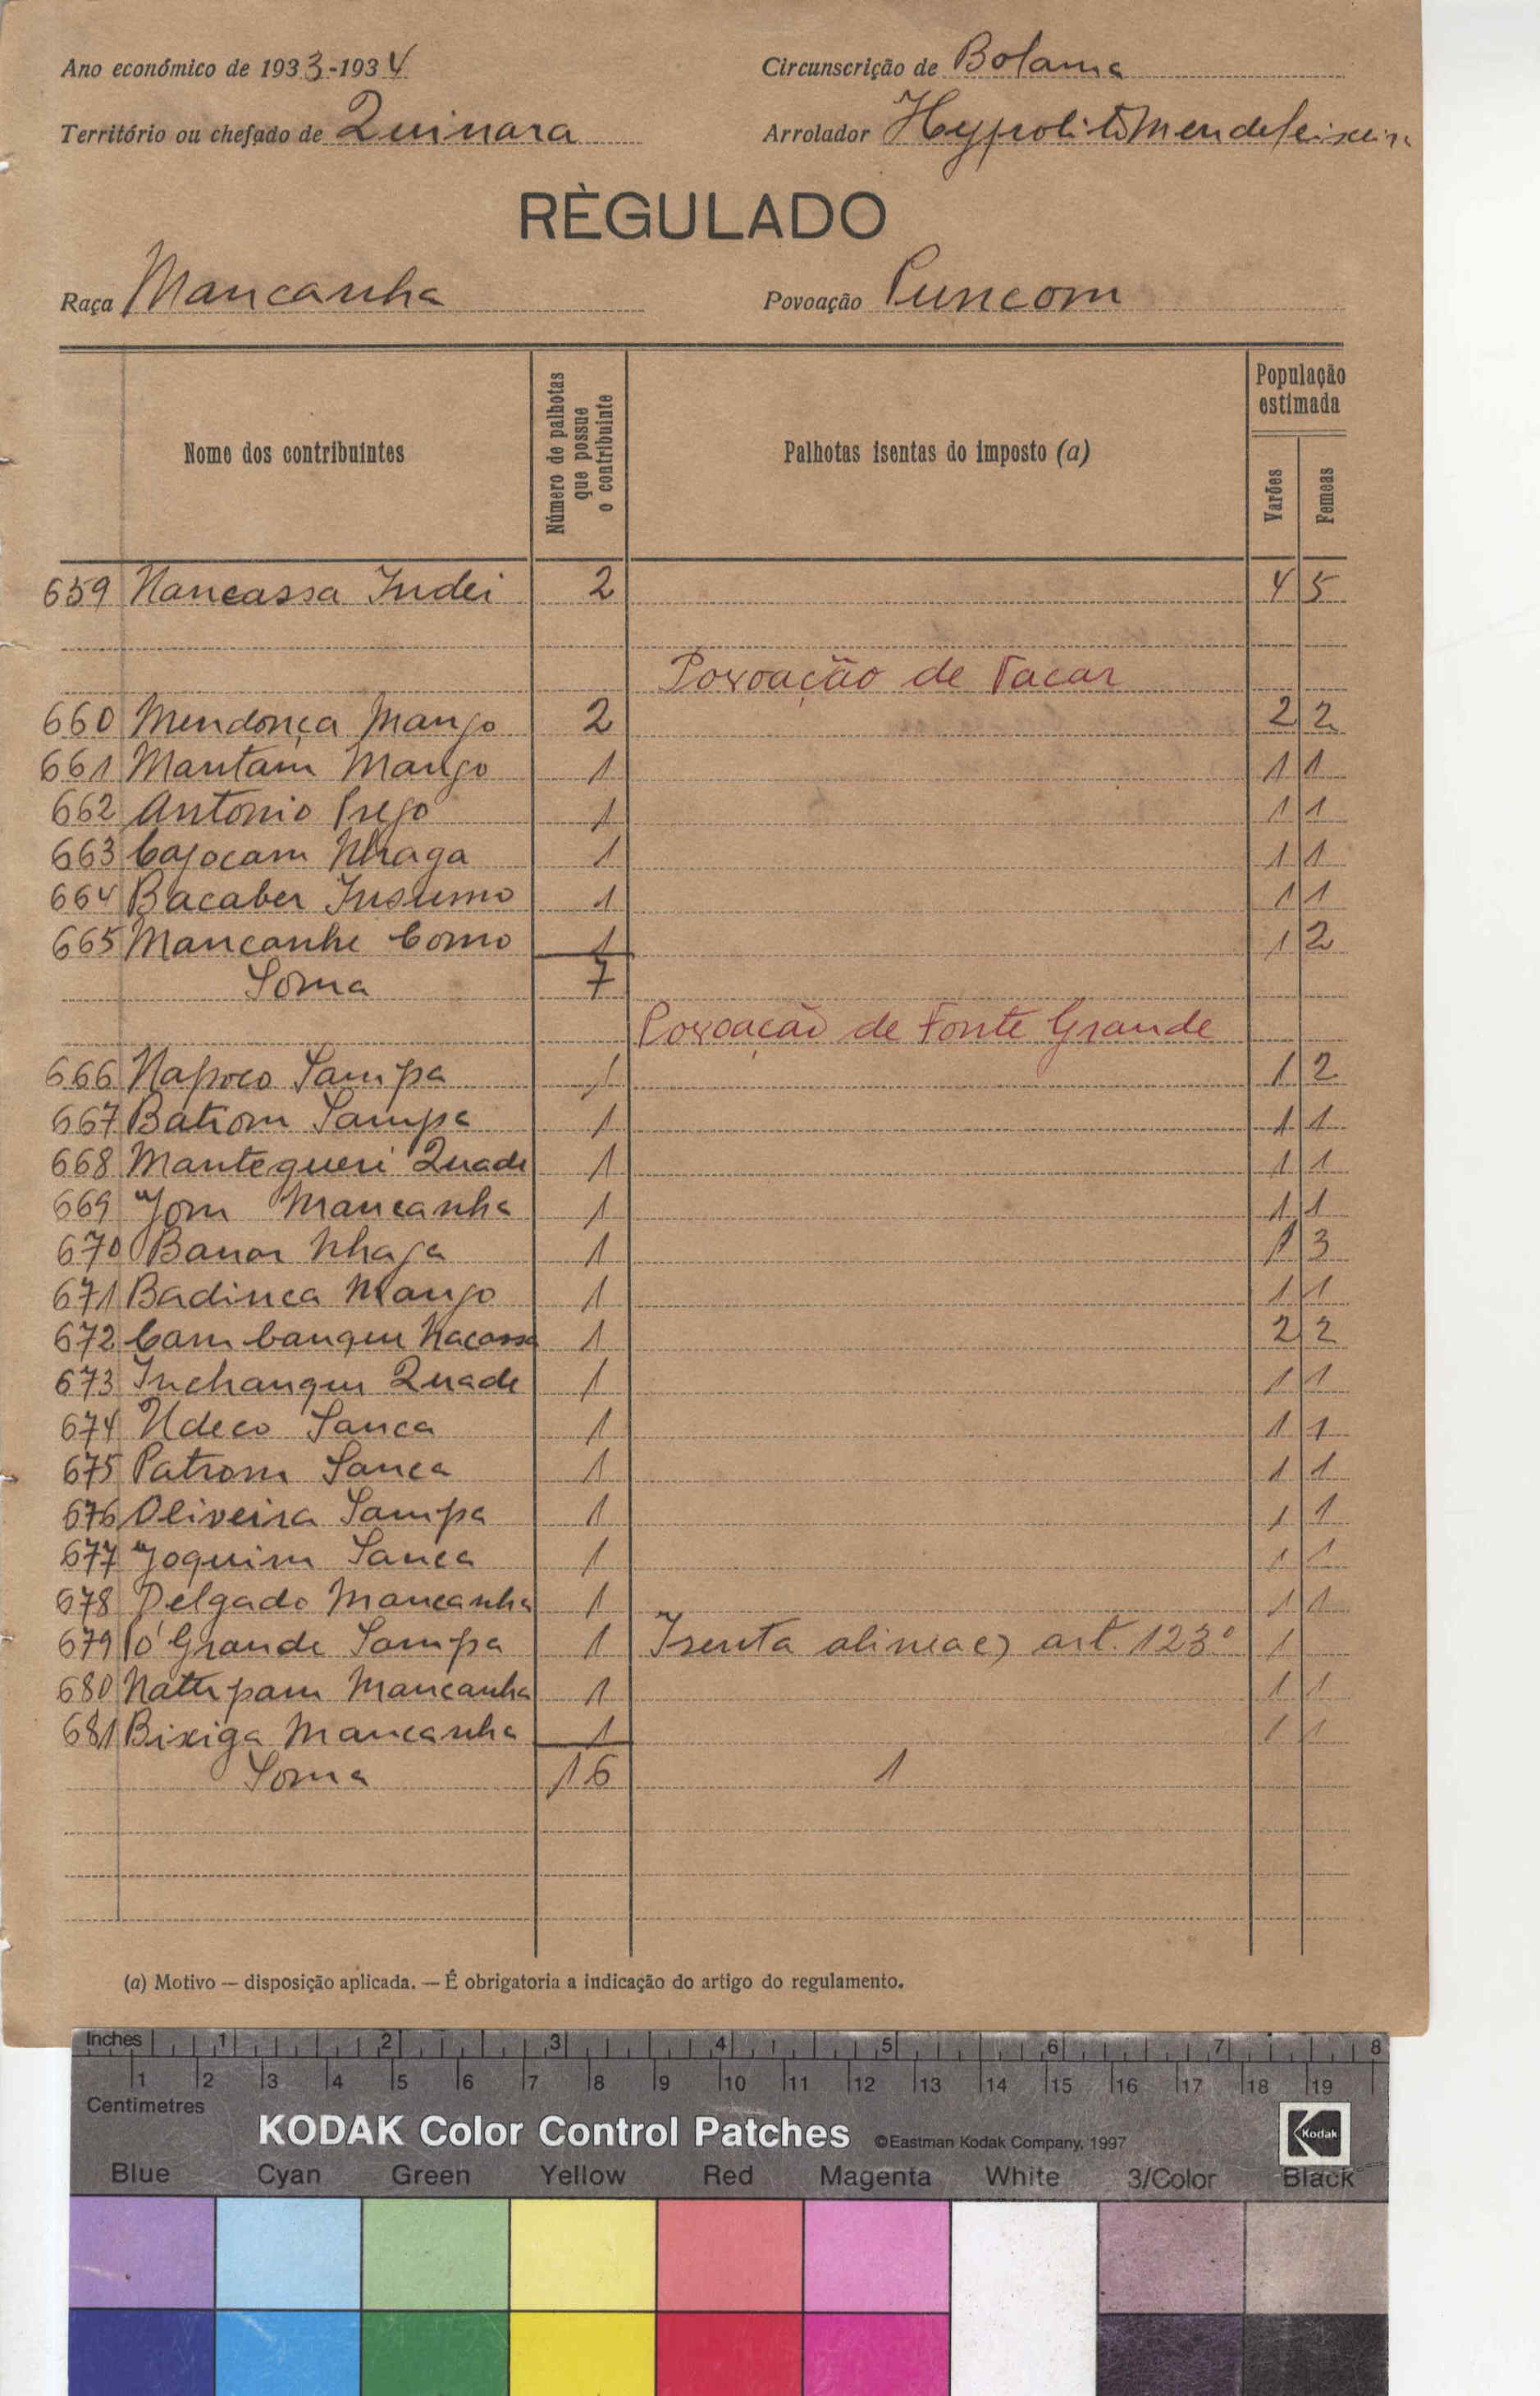 Ano económico de 1933-1934
Circunscrição de Bolama
Território ou chefado de Quinara
Arrolador Hypolito Mendes Teixeira
RÈGULADO
Raça Mancanha
Povoação Puncom
Nome dos contribuintes
Número de palhotas que possue o contribuinte
Palhotas isentas do imposto (a)
População estimada
Varões
Femeas
659 Nancassa Indei 2 4 5
Povoação de Tacar
660 Mendonça Mango 2 2 2
661 Mantam Mango 1 1 1
662 Antonio Prego 1 1 1
663 Cajocam Nhaga 1 1 1
664 Bacaber Insumo 1 1 1
665 Mancanhe Como 1 1 2
Soma 7
Povoação de Fonte Grande
666 Napoco Sampa 1 1 2
667 Batrom Sampa 1 1 1
668 Mantegueri Quade 1 1 1
669 Jom Mancanha 1 1 1
670 Banor Nhaga 1 1 3
671 Badinca Mango 1 1 1
672 Cambanque Nacassa 1 2 2
673 Inchangue Quade 1 1 1
674 Udeco Sanca 1 1 1
675 Patrom Sanca 1 1 1
676 Oliveira Sampa 1 1 1
677 Joquim Sanca 1 1 1
678 Delgado Mancanha 1 1 1
679 Pó Grande Sampa 1 Isenta alinea e) art. 123º 1
680 Natupam Mancanha 1 1 1
681 Bixiga Mancanha 1 1 1
Soma 16 1
(a) Motivo — disposição aplicada. — É obrigatoria a indicação do artigo do regulamento.
Inches 1 2 3 4 5 6 7 8
1 2 3 4 5 6 7 8 9 10 11 12 13 14 15 16 17 18 19
Centimetres
KODAK Color Control Patches ©Eastman Kodak Company, 1997 Kodak
Blue Cyan Green Yellow Red Magenta White 3/Color Black